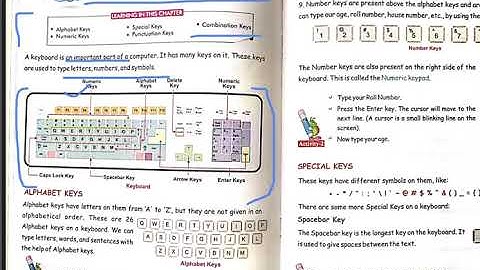 LEARNING IN THIS CHAPTER
• Alphabet Keys
• Special Keys
• Combination Keys
• Numeric Keys
• Punctuation Keys
A keyboard is an important part of a computer. It has many keys on it. These keys
are used to type letters, numbers, and symbols.
Numeric Keys
Alphabet Keys
Delete Key
Numeric Keys
Caps Lock Key
Spacebar Key
Arrow Keys
Enter Keys
Keyboard
ALPHABET KEYS
Alphabet keys have letters on them from 'A' to 'Z', but they are not given in an
alphabetical order. There are 26
Alphabet keys on a keyboard. We can
type letters, words, and sentences with
the help of Alphabet keys.
Q W E R T Y U I O P
A S D F G H J K L
Z X C V B N M
Alphabet Keys
9. Number keys are present above the alphabet keys and are
can type our age, roll number, house number, etc., by using the
1 2 3 4 5 6
Number Keys
The Number keys are also present on the right side of the
keyboard. This is called the Numeric keypad.
Type your Roll Number.
Press the Enter key. The cursor will move to the
next line. (A cursor is a small blinking line on the
screen).
Now type your age.
Activity-2
SPECIAL KEYS
These keys have different symbols on them, like:
There are some more Special Keys on a Keyboard:
Spacebar Key
The Spacebar key is the longest key on the keyboard. It
is used to give spaces between the text.